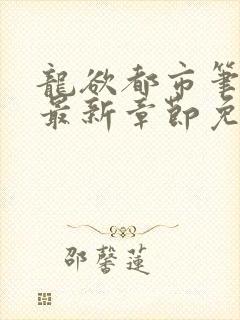 龍欲都市筆
最新章節免
邵馨蓮